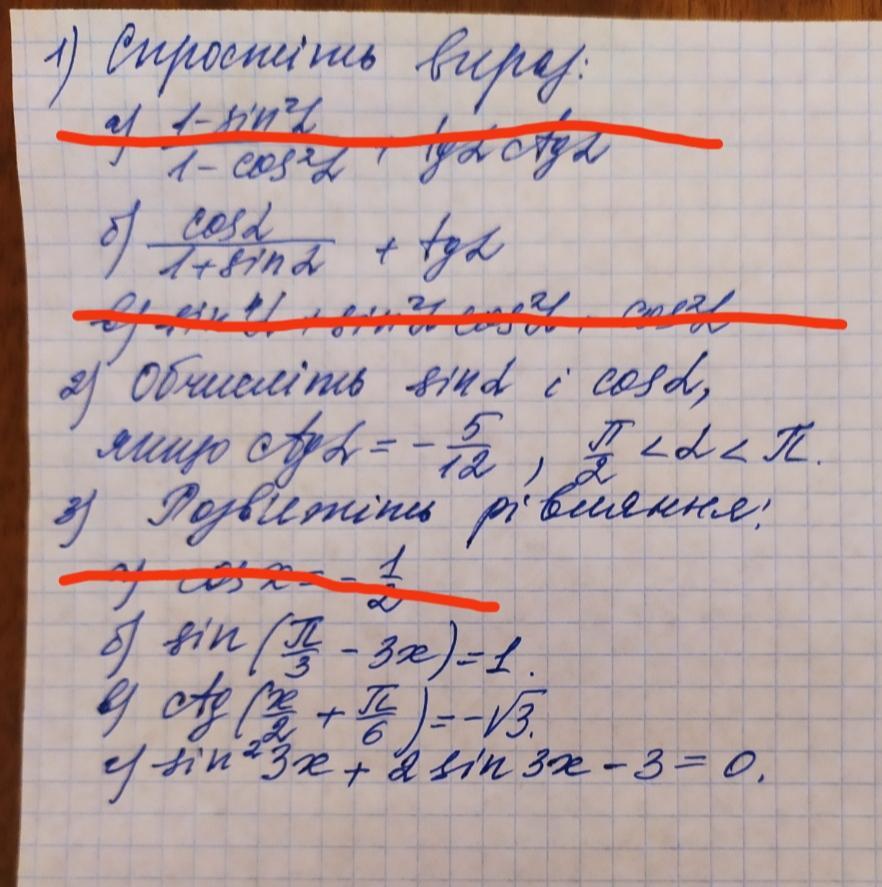 1) Спростіть вираз:
а) (1-sin²α)/(1-cos²α) · tgα ctgα
б) cosα/(1+sinα) + tgα
в) sin⁴α + sin²α cos²α + cos²α
2) Обчисліть sinα і cosα,
якщо ctgα = -5/12, π/2 < α < π.
3) Розв'яжіть рівняння:
а) cos x = -1/2
б) sin(π/3 - 3x) = 1.
в) ctg(x/2 + π/6) = -√3.
г) sin²3x + 2 sin 3x - 3 = 0.